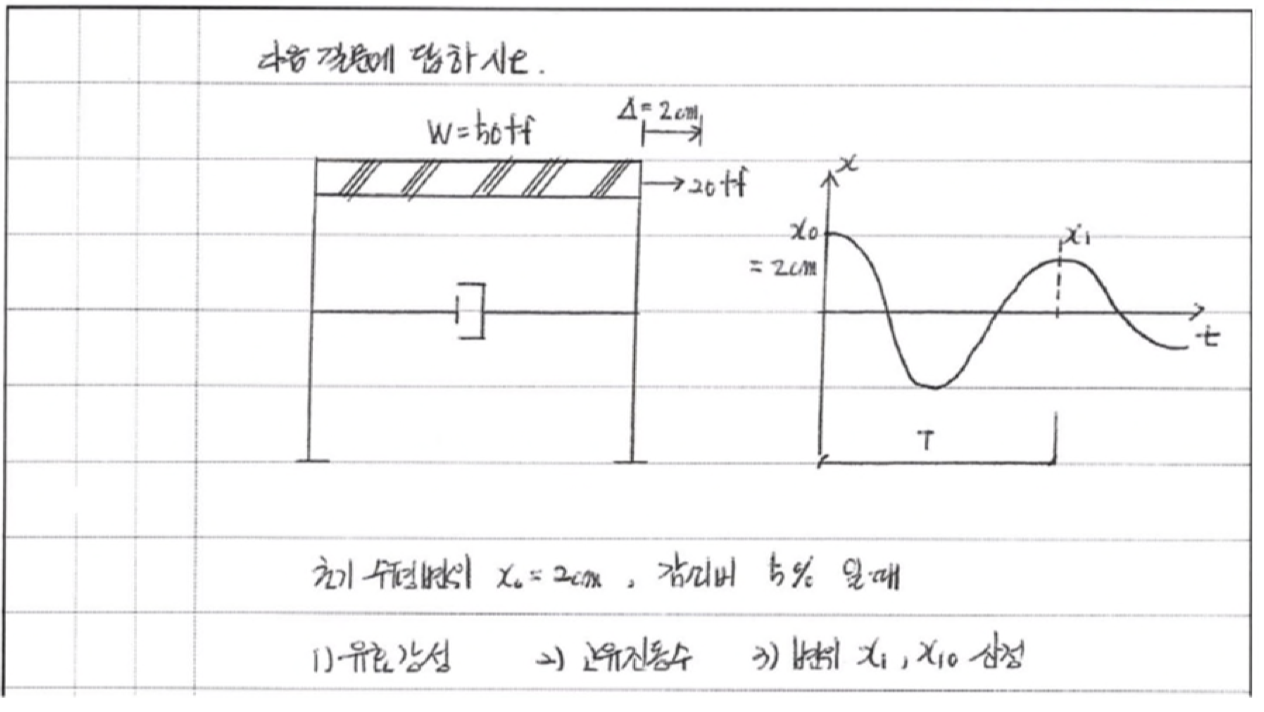 다음 질문에 답하시오.
Δ= 2cm
W=50tf
→20tf
x
x₀
= 2cm
x₁
t
T
초기 수평변위 x₀ = 2cm , 감쇠비 5% 일때
1) 유효강성 2) 고유진동수 3) 변위 x₁ , x₁₀ 산정